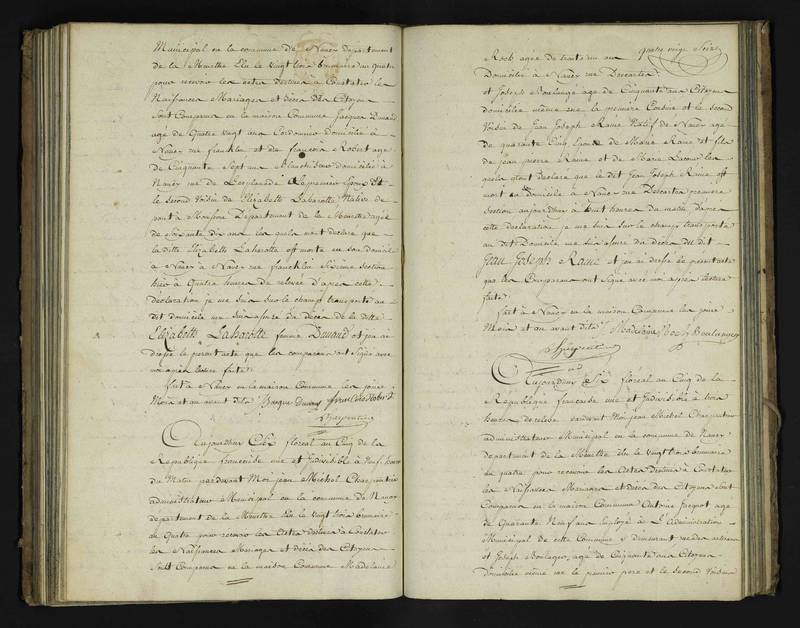 Municipal en la commune de Nancy departement
de la Meurthe Elu le vingt trois brumaire an quatre
pour recevoir les actes destinés à Constater les
Naissances Mariages et décés des Citoyens
Sont Comparus en la maison Commune Jacques Durand
agé de Quatre vingt ans Cordonnier domicilié à
Nancy rue franklin et de françois Robert agé
de Cinquante Sept ans Blanchisseur domicilié à
Nancy rue de L'esplanade Le premier Epoux et
le second Voisin de Elizabeth Laharotte Native de
pont à Mousson Departement de la Meurthe agée
de Soixante dix ans les quels m'ont déclaré que
la ditte Elizabeth Laharotte est morte en son domicile
à Nancy rue francklin Sixieme Section
hier à Quatre heures de relevée d'apres cette
déclaration je me suis sur le champ transporté au
dit domicile me suis assuré du décés de la ditte
Elizabeth Laharotte femme Durand et j'en ai
dressé le present acte que les comparans ont Signé avec
moi après lecture faite
fait à Nancy en la maison Commune les jour
Mois et an avant dits Jacque Durand François Robert
Charpentier
Aujourdhui Six floreal an Cinq de la
Republique francoise une et Indivisible à Neuf heures
du Matin pardevant Moi jean Michel Charpentier
administrateur Municipal en la commune de Nancy
departement de la Meurthe Elu le vingt trois brumaire
an Quatre pour recevoir les Actes destinés à Constater
les Naissances Mariages et décés des Citoyens
Sont Comparus en la maison Commune Madelaine
quatre vingt Seize
Roch agée de trente un ans
Domiciliée à Nancy rue Descartes
et Joseph Boulangé agé de Cinquante ans Citoyen
domicilié même rue la premiere Cousine et le second
Voisin de Jean Joseph Raine Natif de Nancy agé
de quarante Cinq
de jean pierre Raine et de Marie les
quels m'ont Declaré que le dit Jean Joseph Raine est
mort en son domicile à Nancy rue Descartes premiere
Section aujourdhui à huit heures du matin D'apres
cette déclaration je me suis sur le champ transporté
au dit Domicile me suis assuré du décés du dit
Jean Joseph Raine et j'en ai dressé le present acte
que les Comparans ont Signé avec moi après lecture
faite
fait à Nancy en la maison Commune les jour
Mois et an avant dits Madelaine Roch Boulangé
Charpentier
Aujourdhui Six floreal an Cinq de la
Republique francoise une et Indivisible à trois
heures de relevée pardevant Moi jean Michel Charpentier
administrateur Municipal en la commune de Nancy
departement de la Meurthe Elu le vingt trois brumaire
an quatre pour recevoir les Actes Destinés à Constater
les Naissances Mariages et décés des Citoyens Sont
Comparus en la maison Commune Antoine agé
de Quarante Neuf ans Employé à L'Administration
Municipal de cette Commune y demeurant rue
et Joseph Boulangé, agé de Cinquante ans Citoyen
Domicilié même rue le premier pere et le Second Voisin